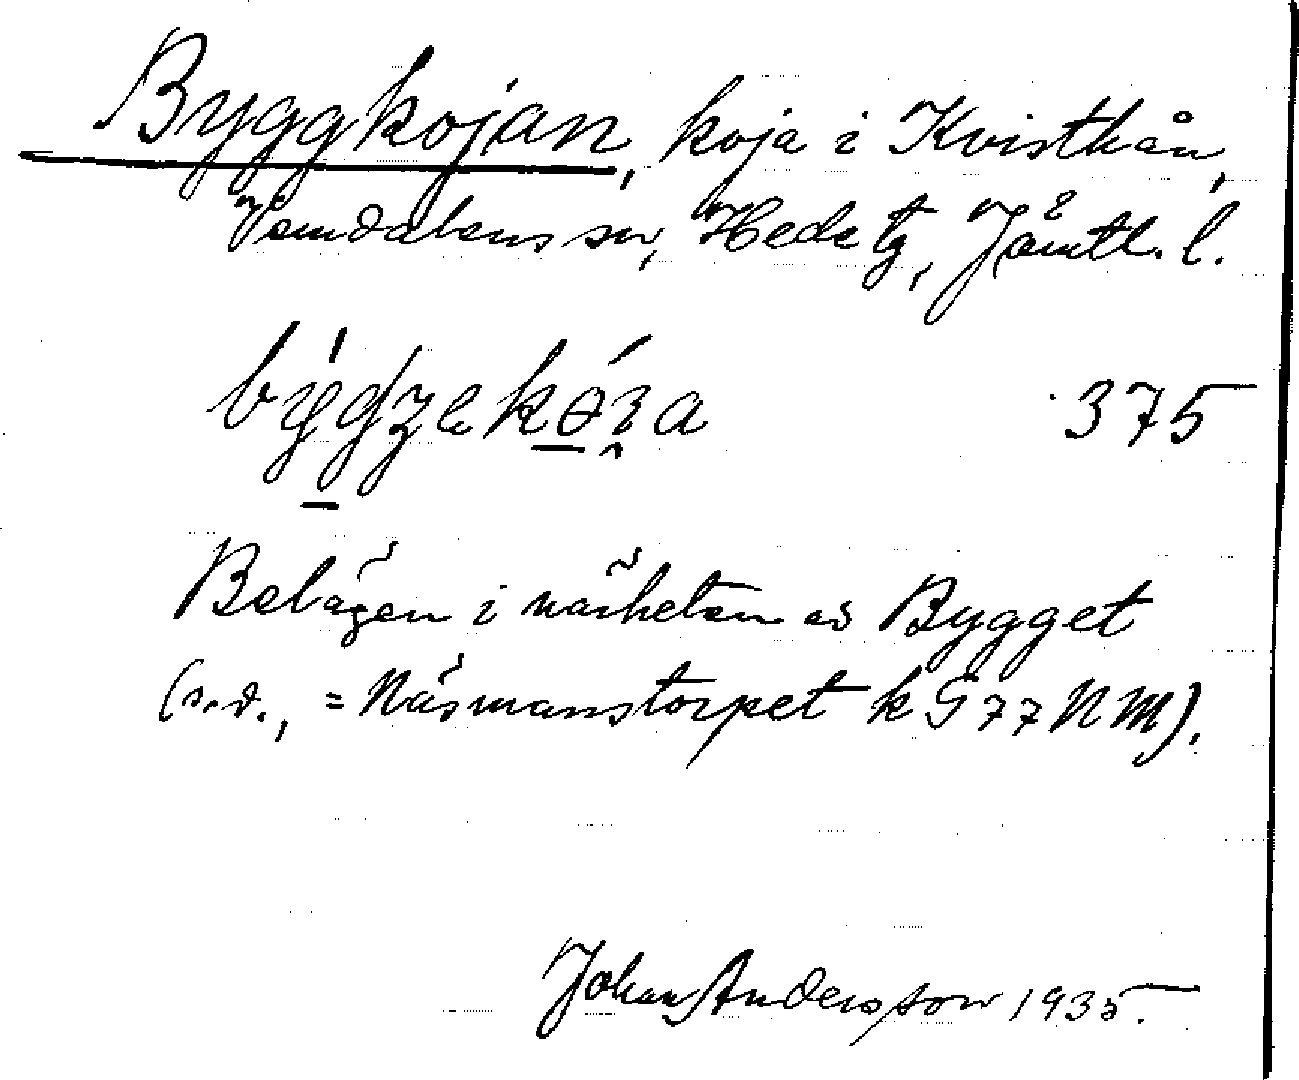 Byggkojan, koja i Kvisthån,
Vemdalens sn, Hede tg, Jämtl. l.
375
Belägen i närheten av Bygget
(s.d., = Näsmanstorpet k G 77 NM).
Johan Andersson 1935.